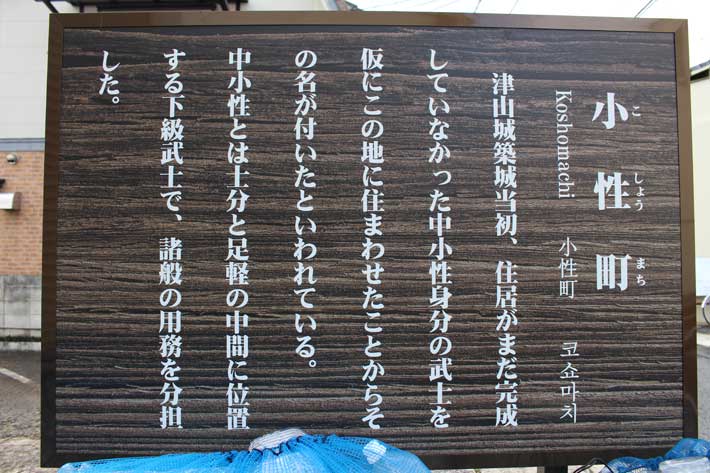 小性町
こ しょう まち
Koshomachi 小性町 코쇼마치
津山城築城当初、住居がまだ完成
していなかった中小性身分の武士を
仮にこの地に住まわせたことからそ
の名が付いたといわれている。
中小性とは士分と足軽の中間に位置
する下級武士で、諸般の用務を分担
した。